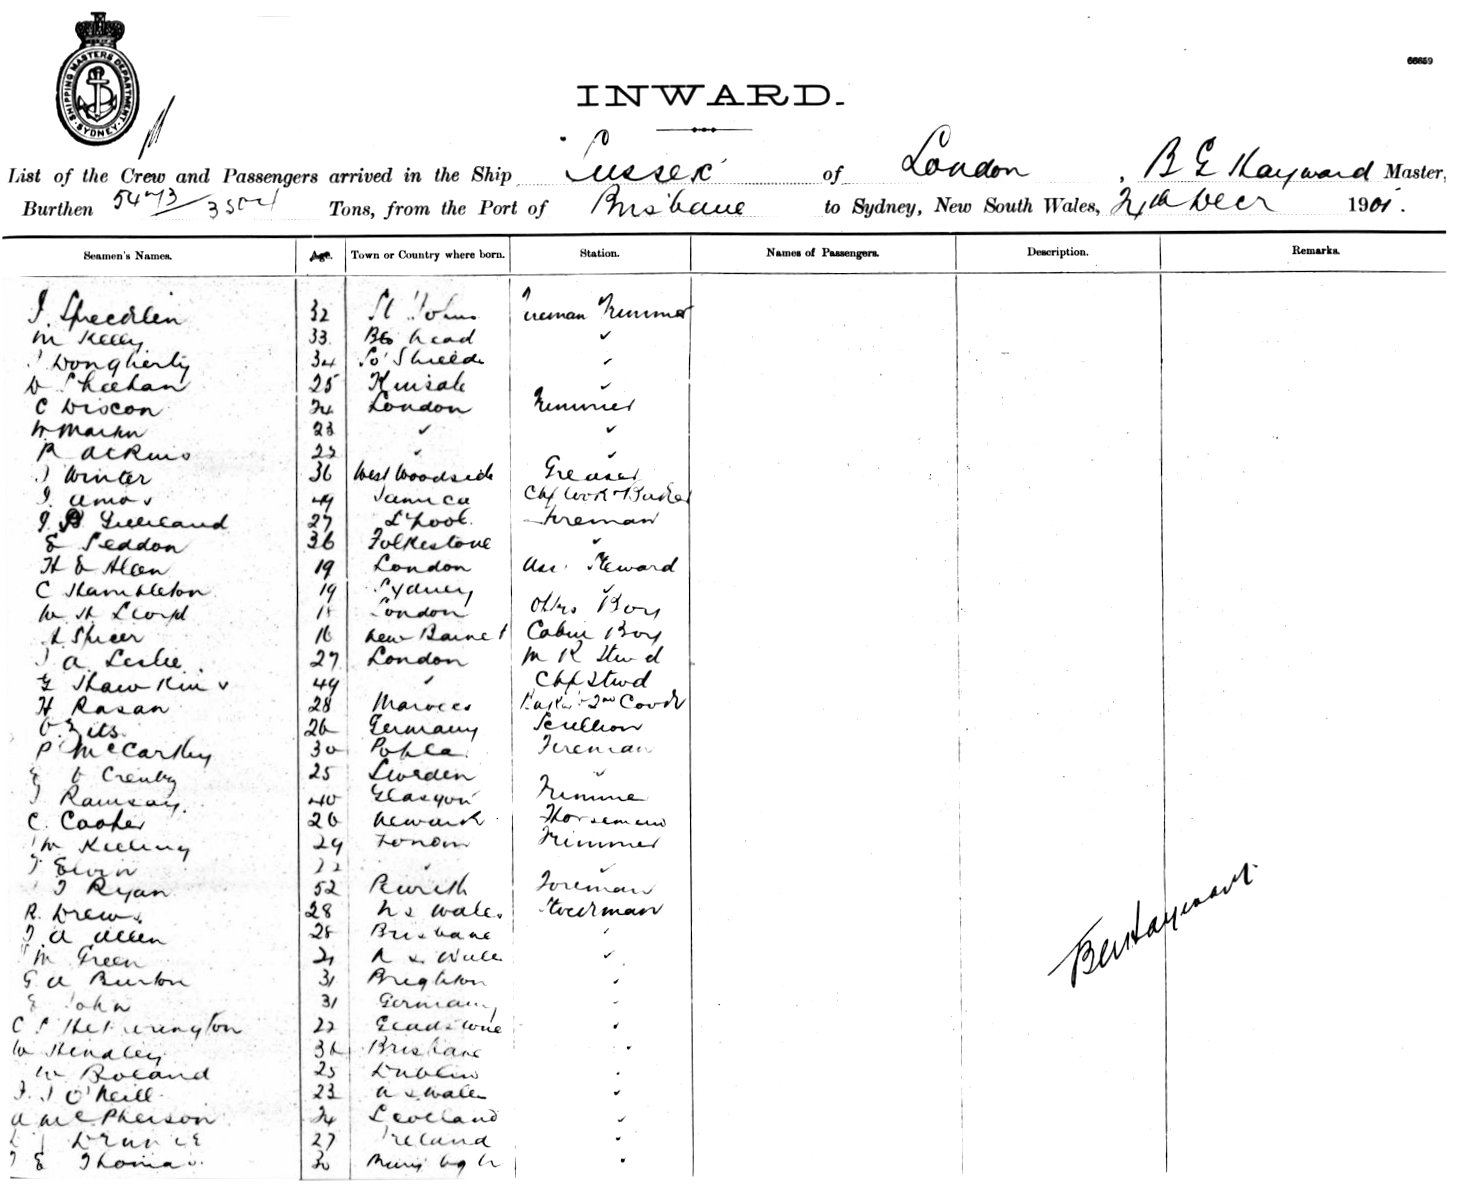 SHIPPING MASTERS DEPARTMENT. SYDNEY
66659
INWARD.
List of the Crew and Passengers arrived in the Ship Sussex of London, B E Hayward Master,
Burthen 5473 / 3504 Tons, from the Port of Brisbane to Sydney, New South Wales, 24th Decr 1901.
Seamen's Names. Age. Town or Country where born. Station. Names of Passengers. Description. Remarks.
32 St Johns Fireman Trimmer
M Kelly 33 B head ✓
J Dougherty 34 So' Shields ✓
D Sheehan 25 Kinsale ✓
C Discon 24 London Trimmer
W Martin 23 ✓ ✓
R Atkins 22 ✓ ✓
J Winter 36 West Woodside Greaser
J Amos 49 Chf Cook & Baker
27 L'pool. Fireman
E Seddon 36 Folkestone ✓
H E Allen 19 London Ass. Steward
C Hambleton 19 Sydney ✓
W H Lloyd 18 London Boy
A Spicer 16 New Barnet Cabin Boy
J A Leslie 27 London M R Stwd
G Hawkins 49 ✓ Chf Stwd
H Rasan 28 2nd Cook
26 Germany Scullion
P McCarthy 30 Fireman
25 Sweden ✓
J Ramsay. 40 Glasgow Trimme
C. Cooper 26 Newark
M Keeling 29 London Trimmer
22 ✓ ✓
J Ryan 52 Foreman
R. Drews 28 N S Wales
J A Allen 28 Brisbane ✓
M Green 21 N S Wales ✓
G A Burton 31 Brighton ✓
E John 31 Germany
22 Gladstone ✓
W Hindley 36 Brisbane
W Boland 25 Dublin
J J O'Neill 23 N S Wales ✓
A McPherson 24 Scotland ✓
27 Ireland ✓
J E Thomas 30
B E Hayward